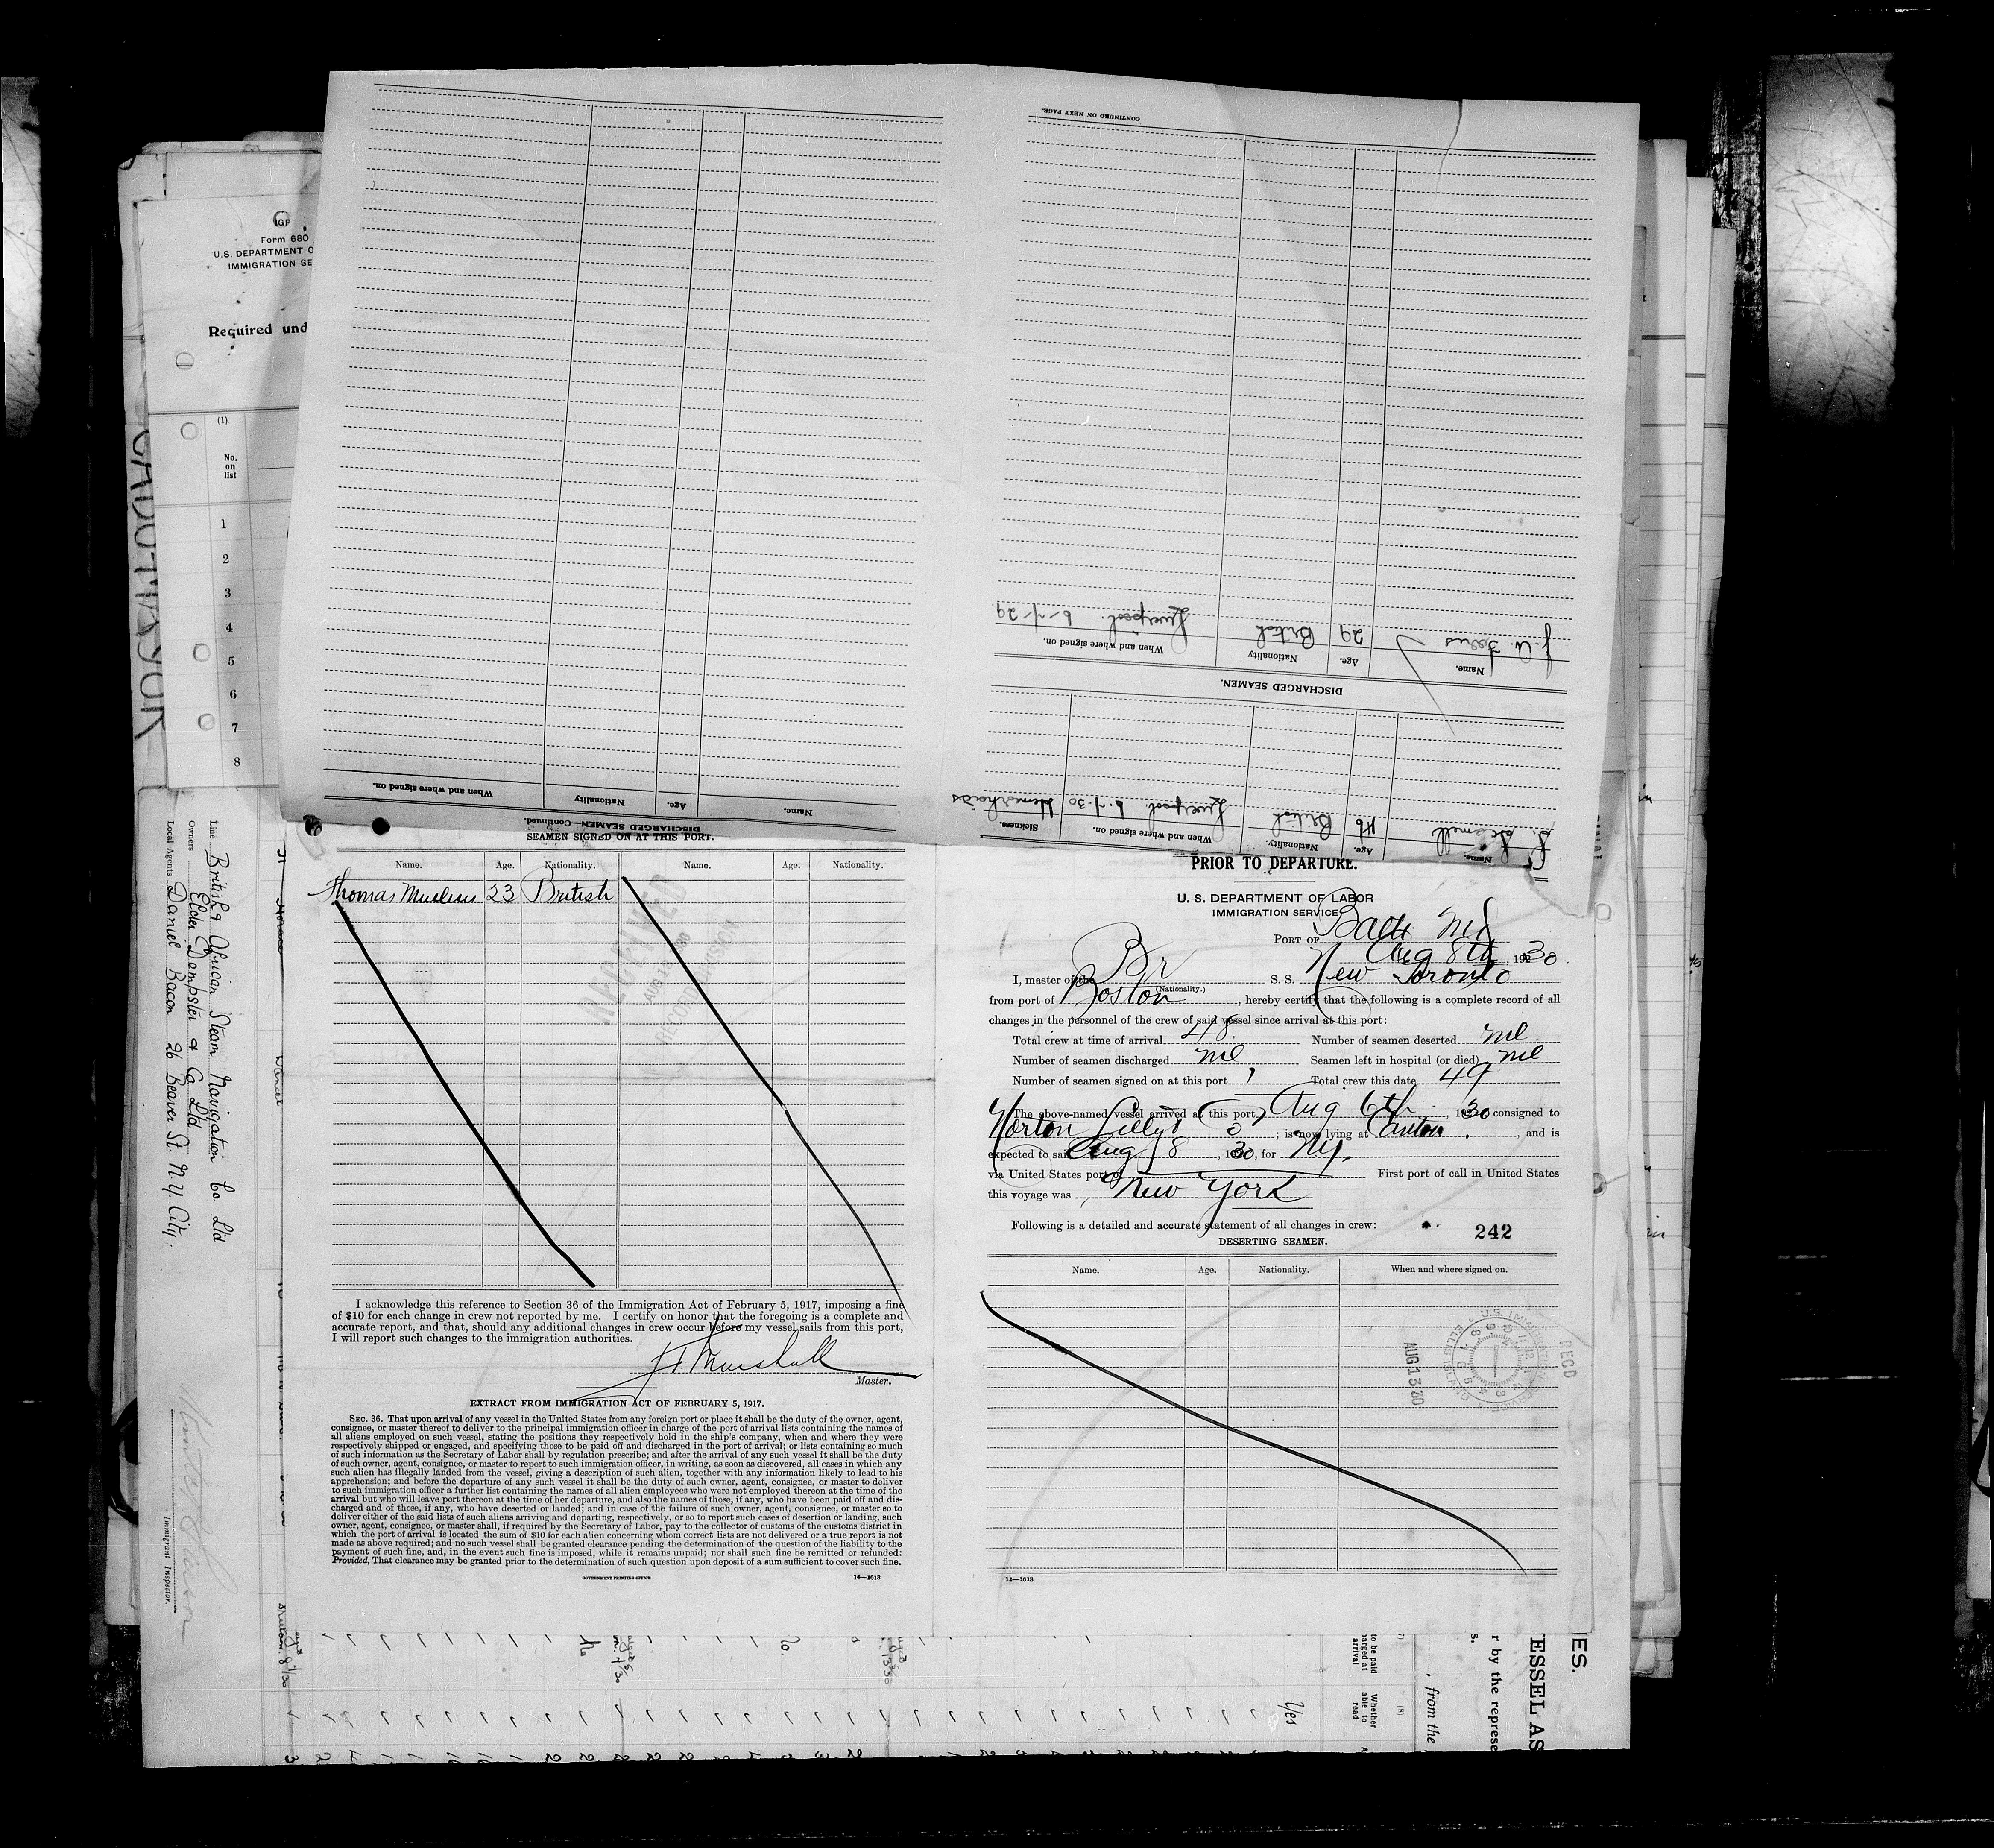 CONTINUED ON NEXT PAGE.
J. W.
29
British
Liverpool. 6-7-29
Name.
Age.
Nationality
When and where signed on.
DISCHARGED SEAMEN.
British
Liverpool 6.7.30
Name.
Age.
Nationality
When and where signed on.
Sickness.
Name.
Age.
Nationality
When and where signed on.
DISCHARGED SEAMEN—Continued.
IGP
Form 680
U.S. DEPARTMENT O
IMMIGRATION SE
Required und
(1)
No.
on
list
1
2
3
4
5
6
7
8
Line British & African Steam Navigation Co Ltd
Owners Elder Dempster & Co Ltd
Local Agents Daniel Bacon 26 Beaver St. N.Y. City.
Immigrant Inspector.
SEAMEN SIGNED ON AT THIS PORT.
Name. Age. Nationality. Name. Age. Nationality.
Thomas 23 British
RECEIVED
I acknowledge this reference to Section 36 of the Immigration Act of February 5, 1917, imposing a fine
of $10 for each change in crew not reported by me. I certify on honor that the foregoing is a complete and
accurate report, and that, should any additional changes in crew occur before my vessel sails from this port,
I will report such changes to the immigration authorities.
Marshall
Master.
EXTRACT FROM IMMIGRATION ACT OF FEBRUARY 5, 1917.
SEC. 36. That upon arrival of any vessel in the United States from any foreign port or place it shall be the duty of the owner, agent,
consignee, or master thereof to deliver to the principal immigration officer in charge of the port of arrival lists containing the names of
all aliens employed on such vessel, stating the positions they respectively hold in the ship's company, when and where they were
respectively shipped or engaged, and specifying those to be paid off and discharged in the port of arrival; or lists containing so much
of such information as the Secretary of Labor shall by regulation prescribe; and after the arrival of any such vessel it shall be the duty
of such owner, agent, consignee, or master to report to such immigration officer, in writing, as soon as discovered, all cases in which any
such alien has illegally landed from the vessel, giving a description of such alien, together with any information likely to lead to his
apprehension; and before the departure of any such vessel it shall be the duty of such owner, agent, consignee, or master to deliver
to such immigration officer a further list containing the names of all alien employees who were not employed thereon at the time of the
arrival but who will leave port thereon at the time of her departure, and also the names of those, if any, who have been paid off and dis-
charged and of those, if any, who have deserted or landed; and in case of the failure of such owner, agent, consignee, or master so to
deliver either of the said lists of such aliens arriving and departing, respectively, or so to report such cases of desertion or landing, such
owner, agent, consignee, or master shall, if required by the Secretary of Labor, pay to the collector of customs of the customs district in
which the port of arrival is located the sum of $10 for each alien concerning whom correct lists are not delivered or a true report is not
made as above required; and no such vessel shall be granted clearance pending the determination of the question of the liability to the
payment of such fine, and, in the event such fine is imposed, while it remains unpaid; nor shall such fine be remitted or refunded:
Provided, That clearance may be granted prior to the determination of such question upon deposit of a sum sufficient to cover such fine.
GOVERNMENT PRINTING OFFICE 14—1613
PRIOR TO DEPARTURE.
U. S. DEPARTMENT OF LABOR
IMMIGRATION SERVICE
PORT OF Balto Md
Aug 8th, 1930.
I, master of the Br S. S. New Toronto
(Nationality.)
from port of Boston, hereby certify that the following is a complete record of all
changes in the personnel of the crew of said vessel since arrival at this port:
Total crew at time of arrival 48. Number of seamen deserted nil
Number of seamen discharged nil Seamen left in hospital (or died) nil
Number of seamen signed on at this port 1 Total crew this date 49
The above-named vessel arrived at this port Aug 6th, 1930 consigned to
Norton Lilly & Co; is now lying at Canton, and is
expected to sail Aug 8, 1930, for Ny.
via United States port of First port of call in United States
this voyage was New York
Following is a detailed and accurate statement of all changes in crew:
242
DESERTING SEAMEN.
Name. Age. Nationality. When and where signed on.
RECD
AUG 13
14—1613
Yes
(8)
Whether
able to
read
to be paid
arrival
, from the
r by the represe
ESSEL AS
IES.